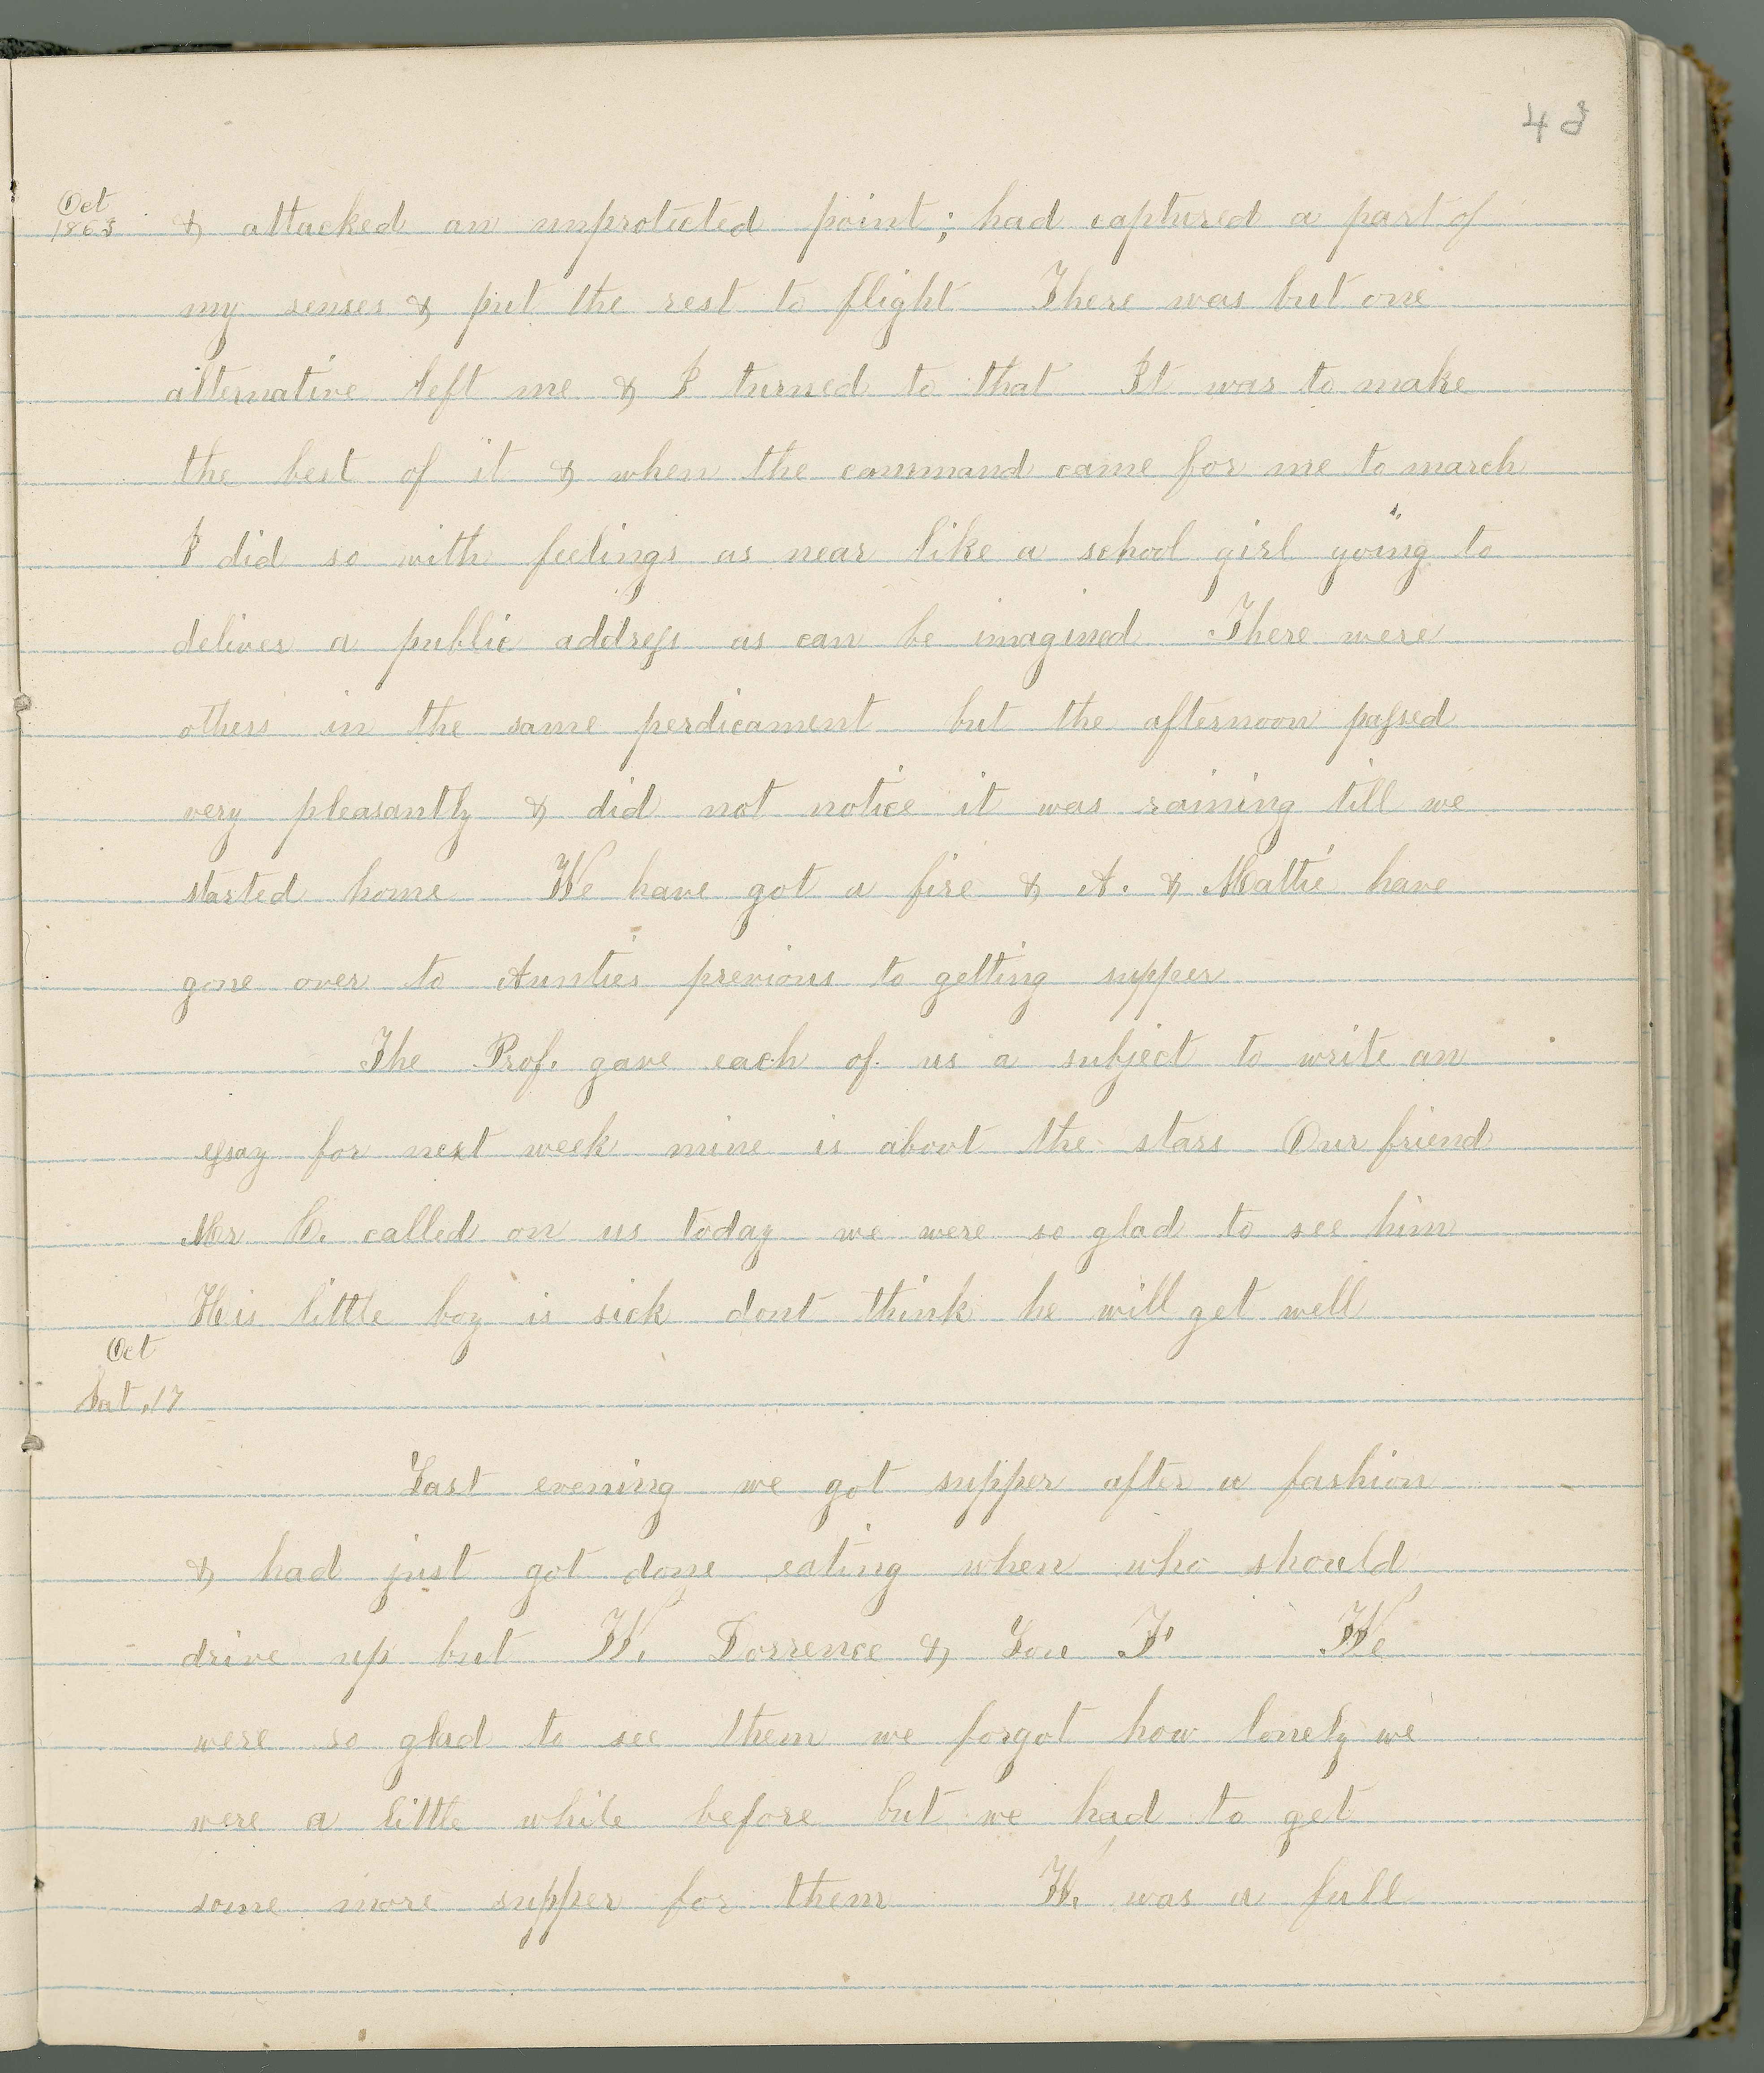 43
Oct
1863
& attacked an unprotected point; had captured a part of
my senses & put the rest to flight There was but one
alternative left me & I turned to that It was to make
the best of it & when the command came for me to march
I did so with feelings as near like a school girl going to
deliver a public address as can be imagined There were
others in the same perdicament but the afternoon passed
very pleasantly & did not notice it was raining till we
started home We have got a fire & A. & Mattie have
gone over to Aunties previous to getting supper
The Prof. gave each of us a subject to write an
essay for next week mine is about the stars Our friend
Mr called on us today we were so glad to see him
His little boy is sick dont think he will get well
Oct
Sat. 17
Last evening we got supper after a fashion
& had just got done eating when who should
drive up but W. Dorrence & Lou F We
were so glad to see them we forgot how lonely we
were a little while before but we had to get
some more supper for them W. was a full